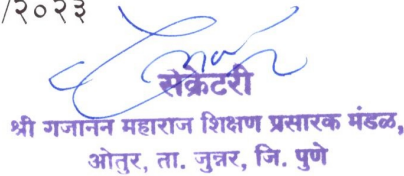 /२०२३
सेक्रेटरी
श्री गजानन महाराज शिक्षण प्रसारक मंडळ,
ओतुर, ता. जुन्नर, जि. पुणे